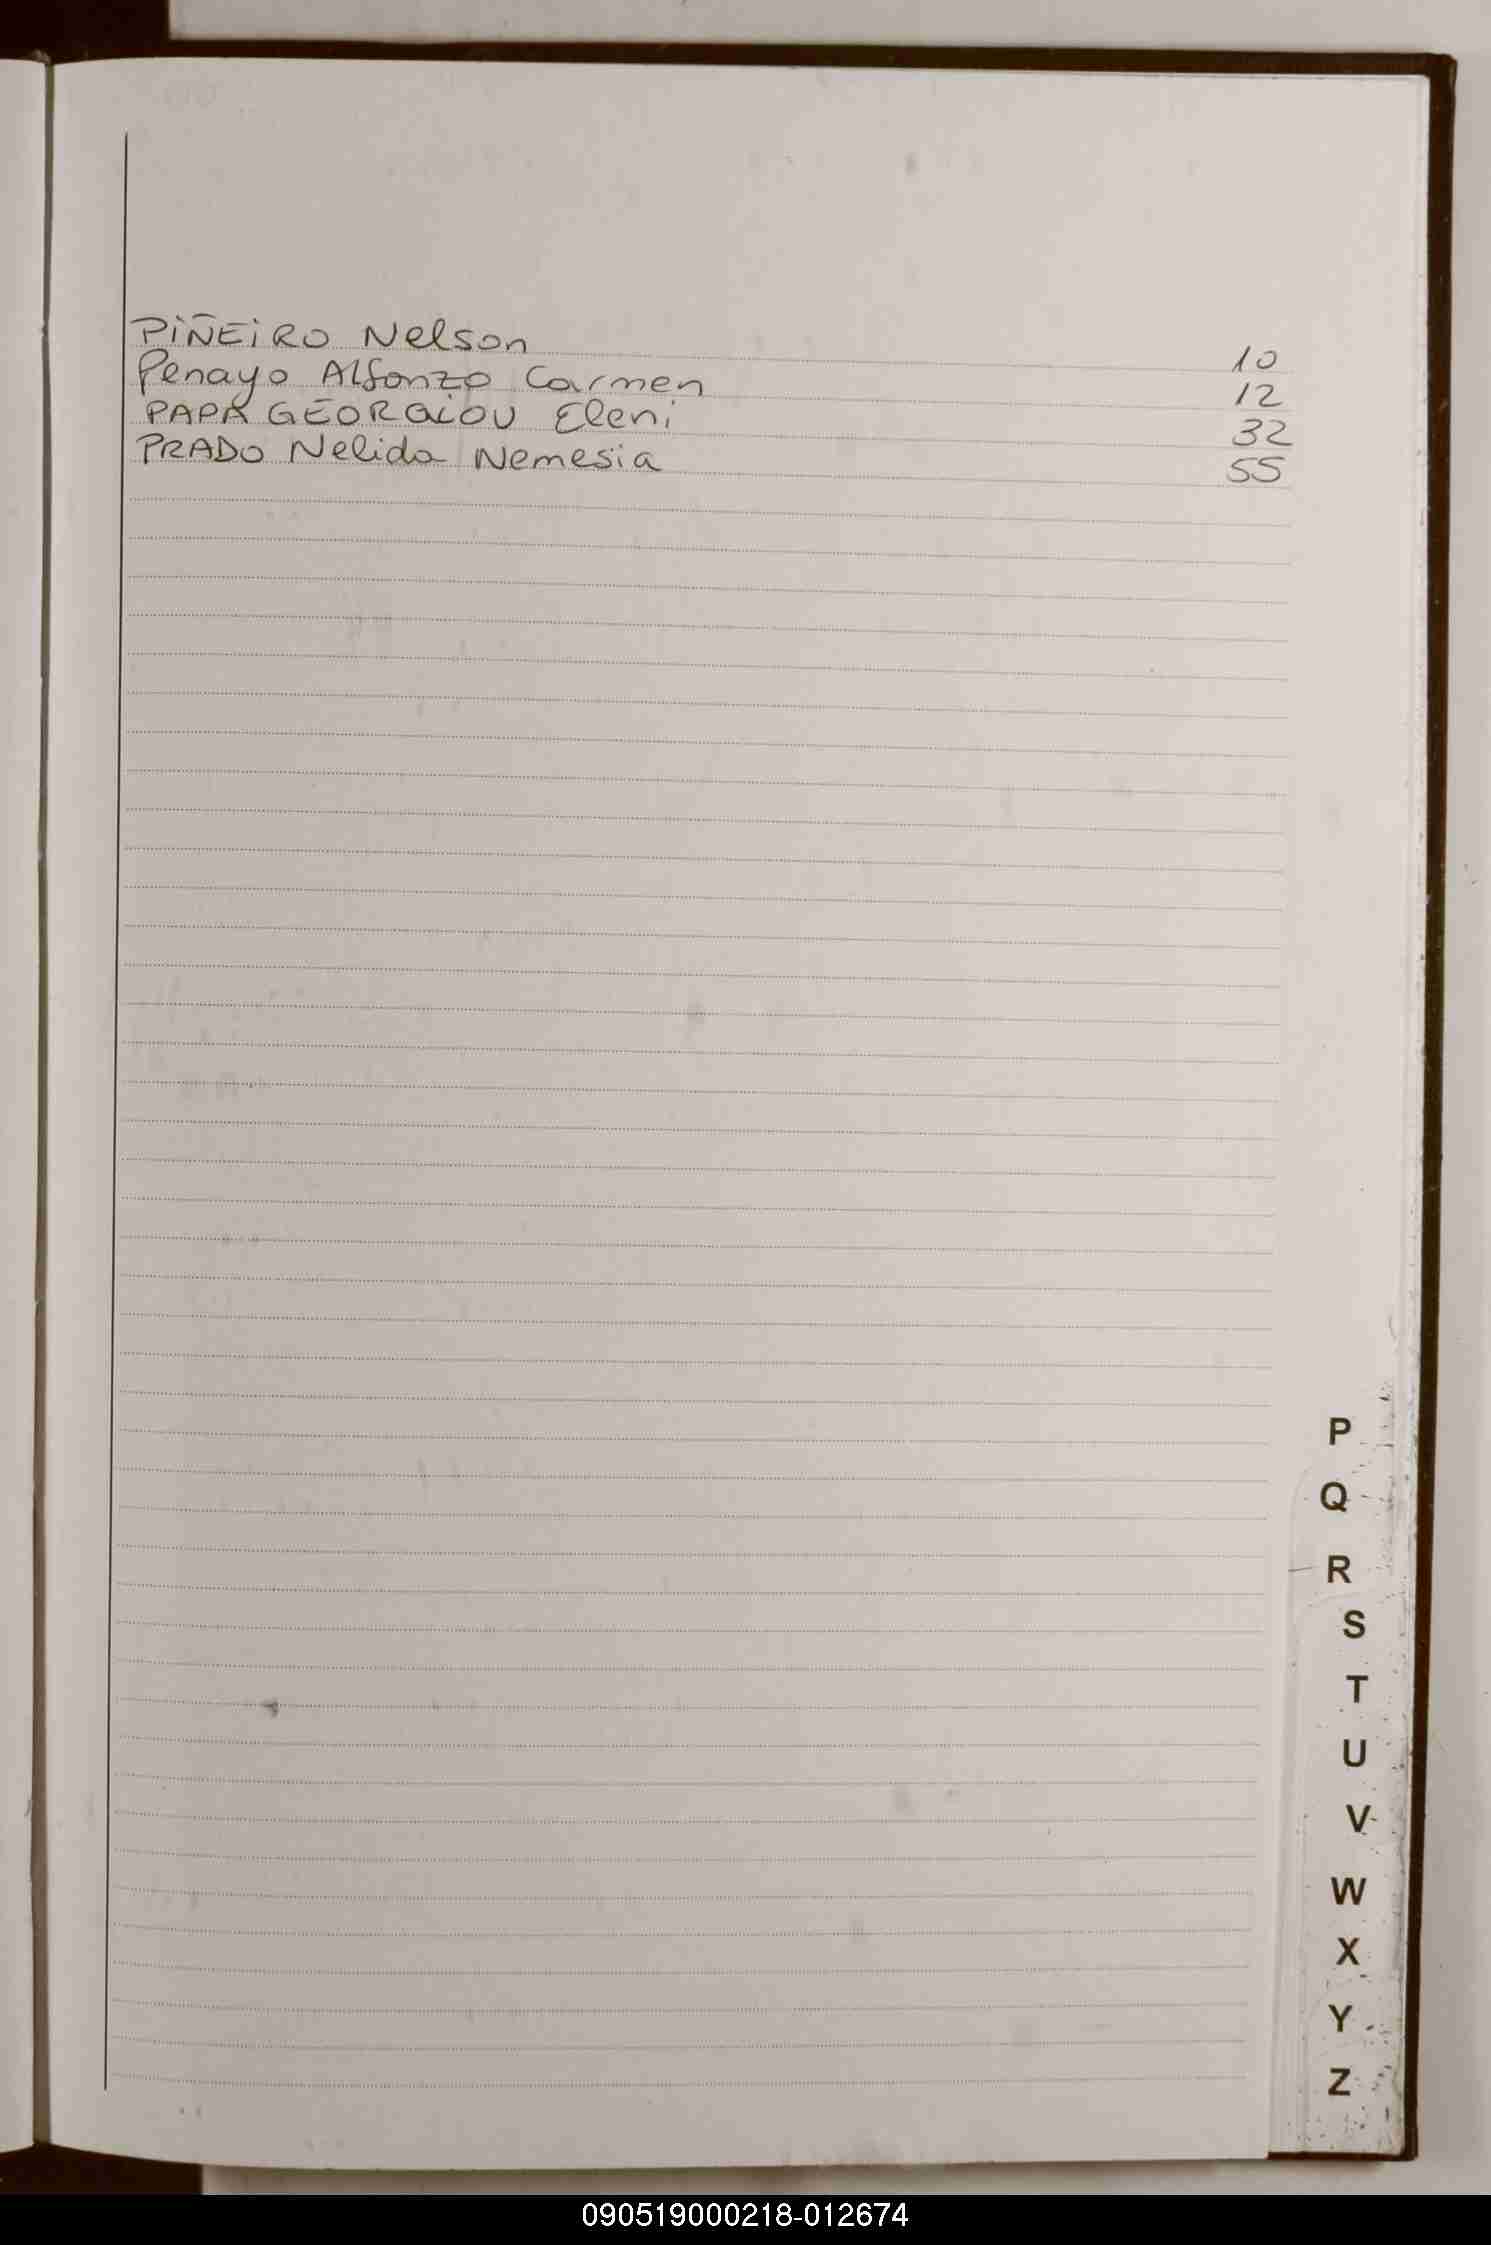 PIÑEIRO Nelson 10
Penayo Alfonzo Carmen 12
PAPA GEORGIOU Eleni 32
PRADO Nelida Nemesia 55
P
Q
R
S
T
U
V
W
X
Y
Z
090519000218-012674